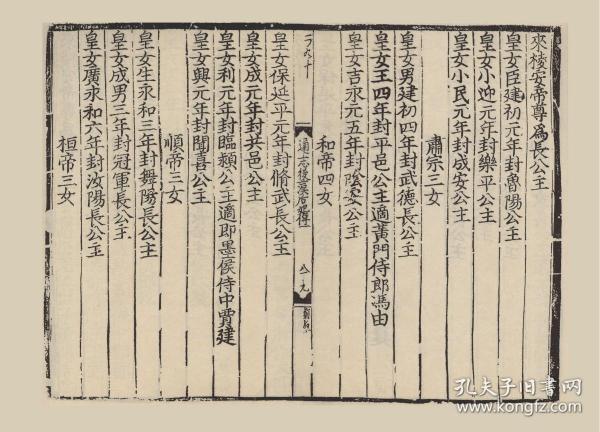 來稜安帝尊爲長公主
皇女臣建初元年封魯陽公主
皇女小迎元年封樂平公主
皇女小民元年封成安公主
肅宗三女
皇女男建初四年封武德長公主
皇女王四年封平邑公主適黃門侍郎馮由
皇女吉永元五年封陰安公主
和帝四女
通志後漢
皇女保延平元年封脩武長公主
皇女成元年封共邑公主
皇女利元年封臨潁公主適即墨侯侍中賈建
皇女興元年封聞喜公主
順帝三女
皇女生永和三年封舞陽長公主
皇女成男三年封冠軍長公主
皇女廣永和六年封汝陽長公主
桓帝三女
孔夫子旧书网
www.kongfz.com